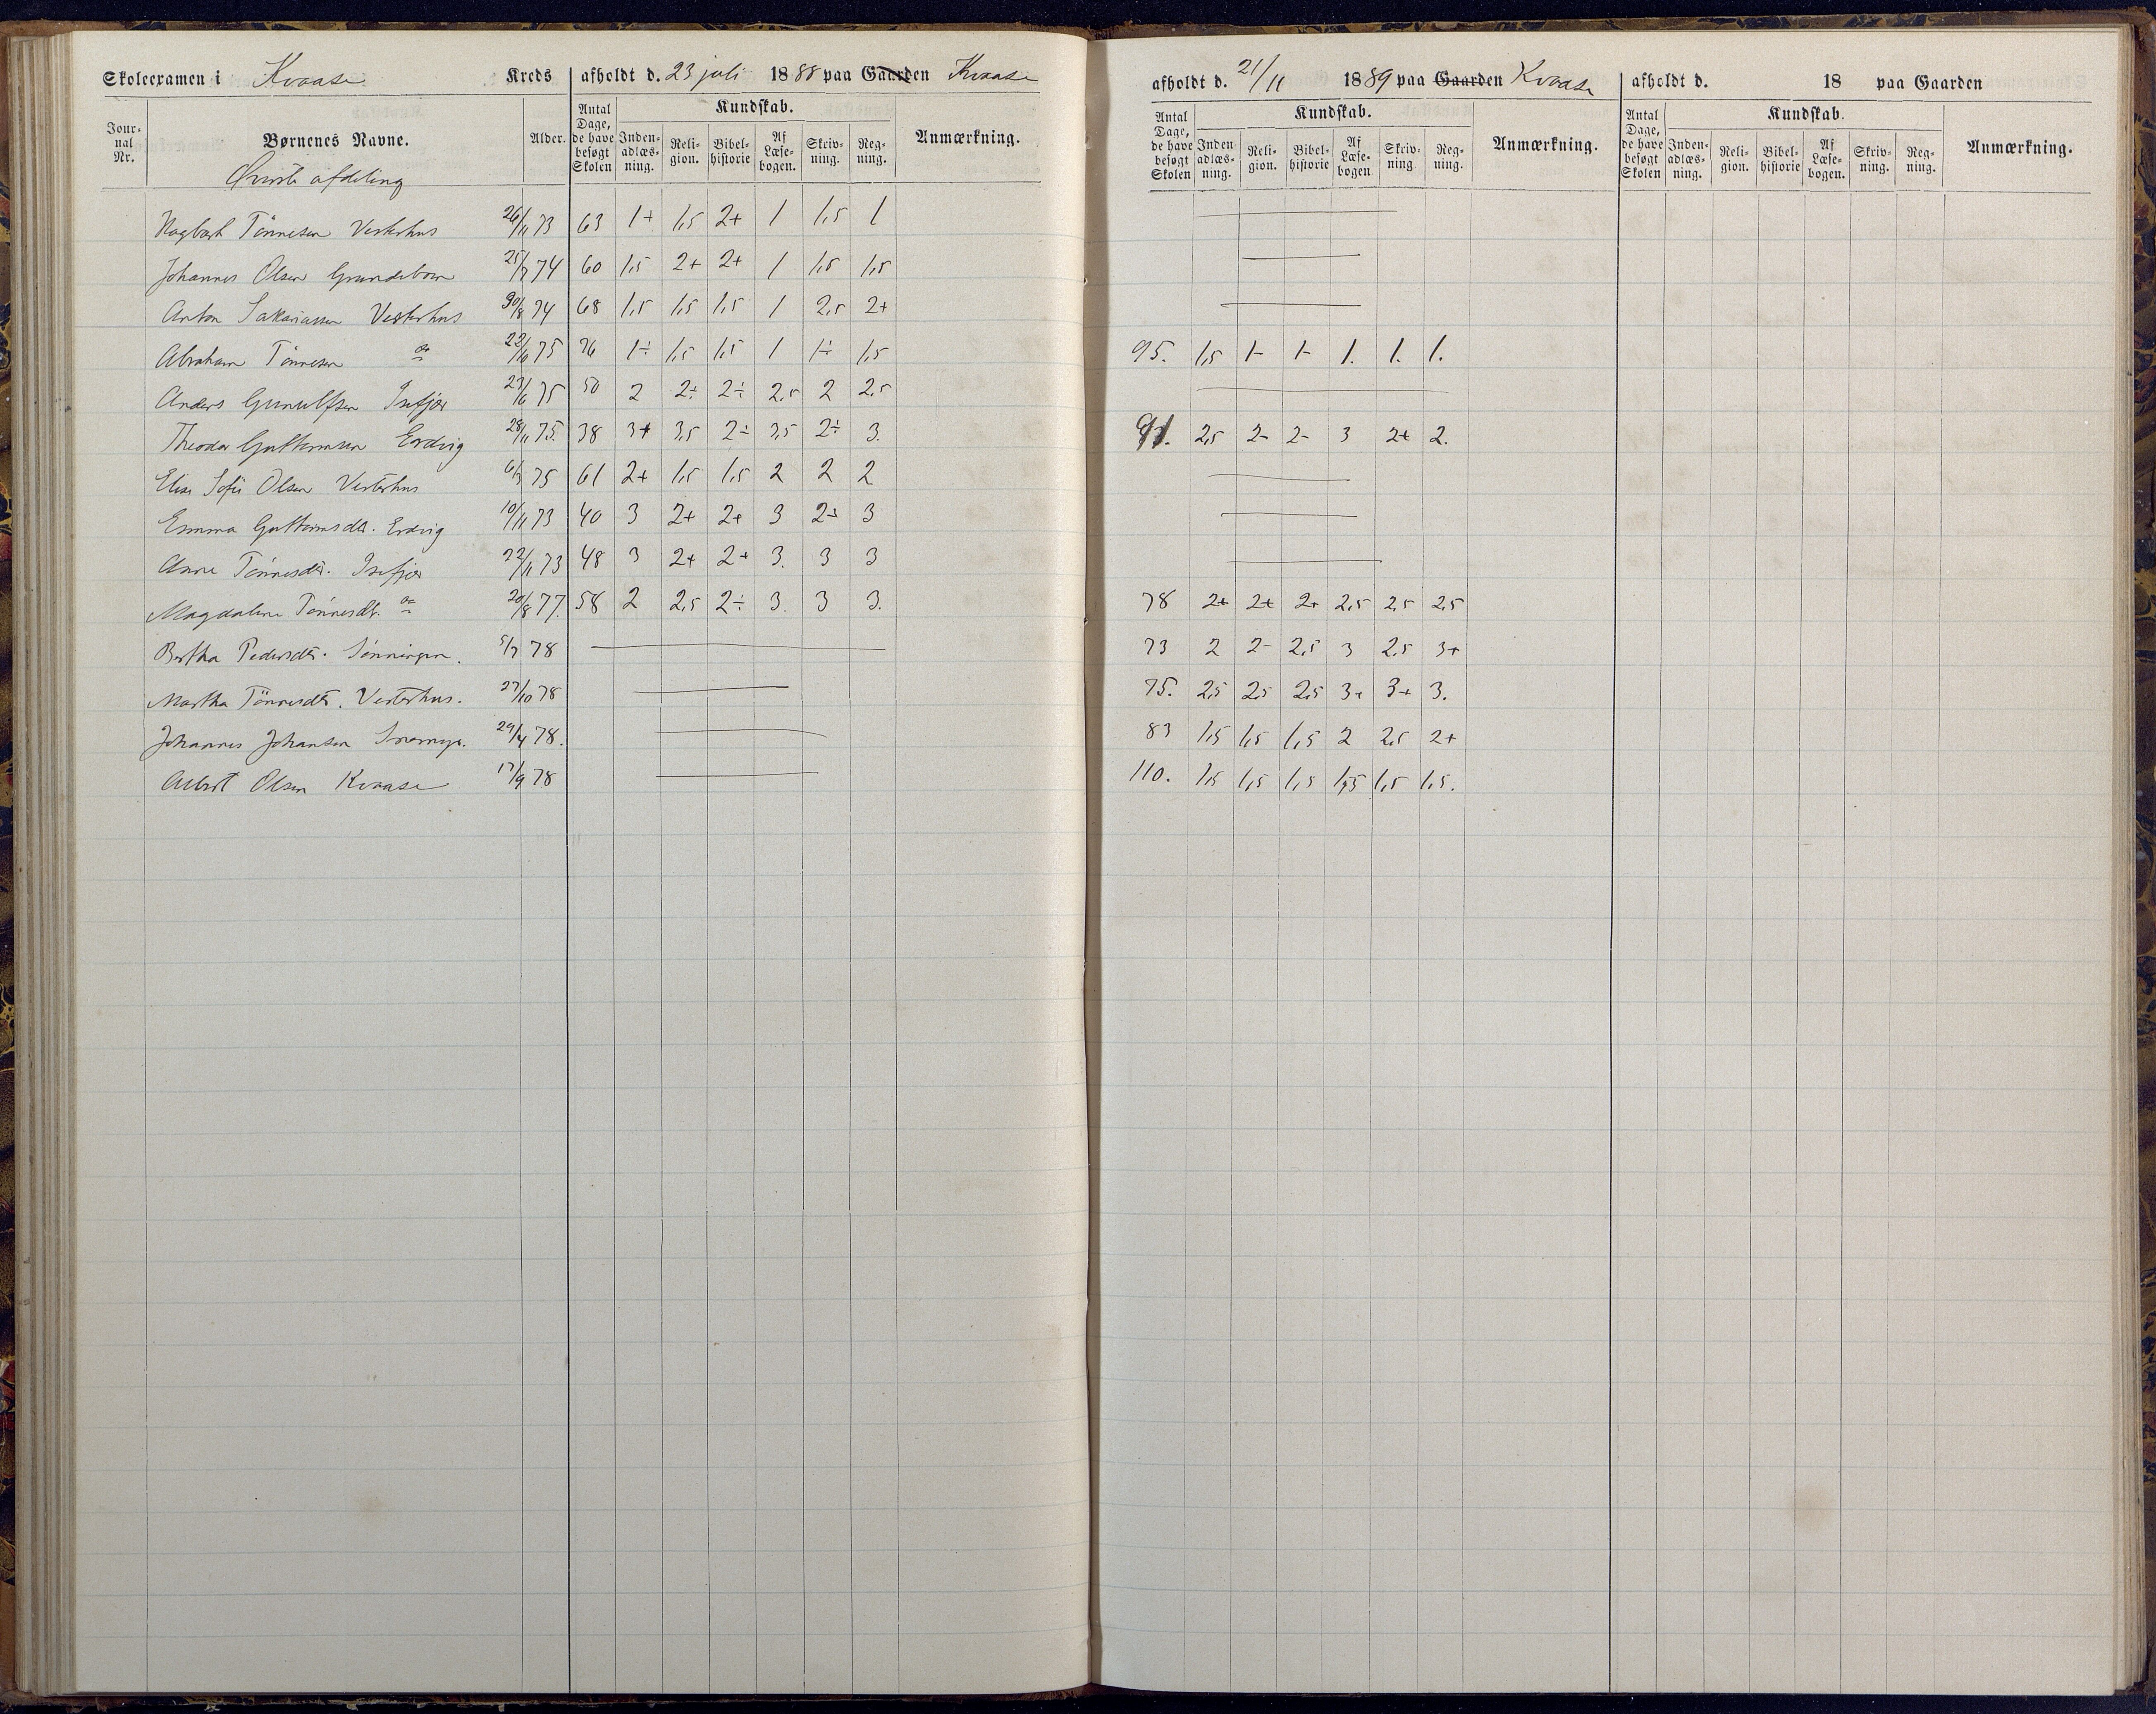 Skoleexamen i Kvaase Kreds afholdt d. 23 juli 1888 paa Gaarden Kvaase
Jour-nal Nr. Børnenes Navne. Alder. Antal Dage, de have besøgt Skolen Kundskab. Inden-adlæs-ning. Reli-gion. Bibel-historie Af Læse-bogen. Skriv-ning. Reg-ning. Anmærkning.
afholdt d. 21/11 1889 paa Gaarden Kvaase
Antal Dage, de have besøgt Skolen Kundskab. Inden-adlæs-ning. Reli-gion. Bibel-historie Af Læse-bogen Skriv-ning Reg-ning. Anmærkning.
afholdt d. 18 paa Gaarden
Antal Dage, de have besøgt Skolen Kundskab. Inden-adlæs-ning. Reli-gion. Bibel-historie Af Læse-bogen. Skriv-ning. Reg-ning. Anmærkning.
Øverste afdeling
Tønnesen Vesterhus 26/11 73 63 1+ 1,5 2+ 1 1,5 1
Johannes Olsen 25/7 74 60 1,5 2+ 2+ 1 1,5 1,5
Anton Sakariassen Vesterhus 30/8 74 68 1,5 1,5 1,5 1 2,5 2+
Abraham Tønnesen do 22/10 75 76 1÷ 1,5 1,5 1 1÷ 1,5 95. 1,5 1- 1- 1. 1. 1.
Anders Gunulfsen Isefjær 23/6 75 50 2 2÷ 2÷ 2,5 2 2,5
Theodor Guttormsen Erdvig 28/11 75. 38 3+ 3,5 2÷ 3,5 2÷ 3. 91. 2,5 2- 2- 3 2+ 2.
Elise Sofie Olsen Vesterhus 6/3 75 61 2+ 1,5 1,5 2 2 2
Emma Guttormsdt. Erdvig 10/11 73 40 3 2+ 2+ 3 2÷ 3
Anne Tønnesdt. Isefjær 22/11 73 48 3 2+ 2+ 3. 3 3
Magdaline Tønnesdt. do 20/8 77. 58 2 2,5 2÷ 3. 3 3. 78 2+ 2+ 2+ 2,5 2,5 2,5
Bertha Pedersdt. 5/7 78 73 2 2- 2,5 3 2,5 3+
Martha Tønnesdt. Vesterhus. 27/10 78 75. 2,5 2,5 2,5 3+ 3+ 3.
Johannes Johansen 29/4 78. 83 1,5 1,5 1,5 2 2,5 2+
Albert Olsen Kvaase 17/9 78 110. 1,5 1,5 1,5 1,5 1,5 1,5.